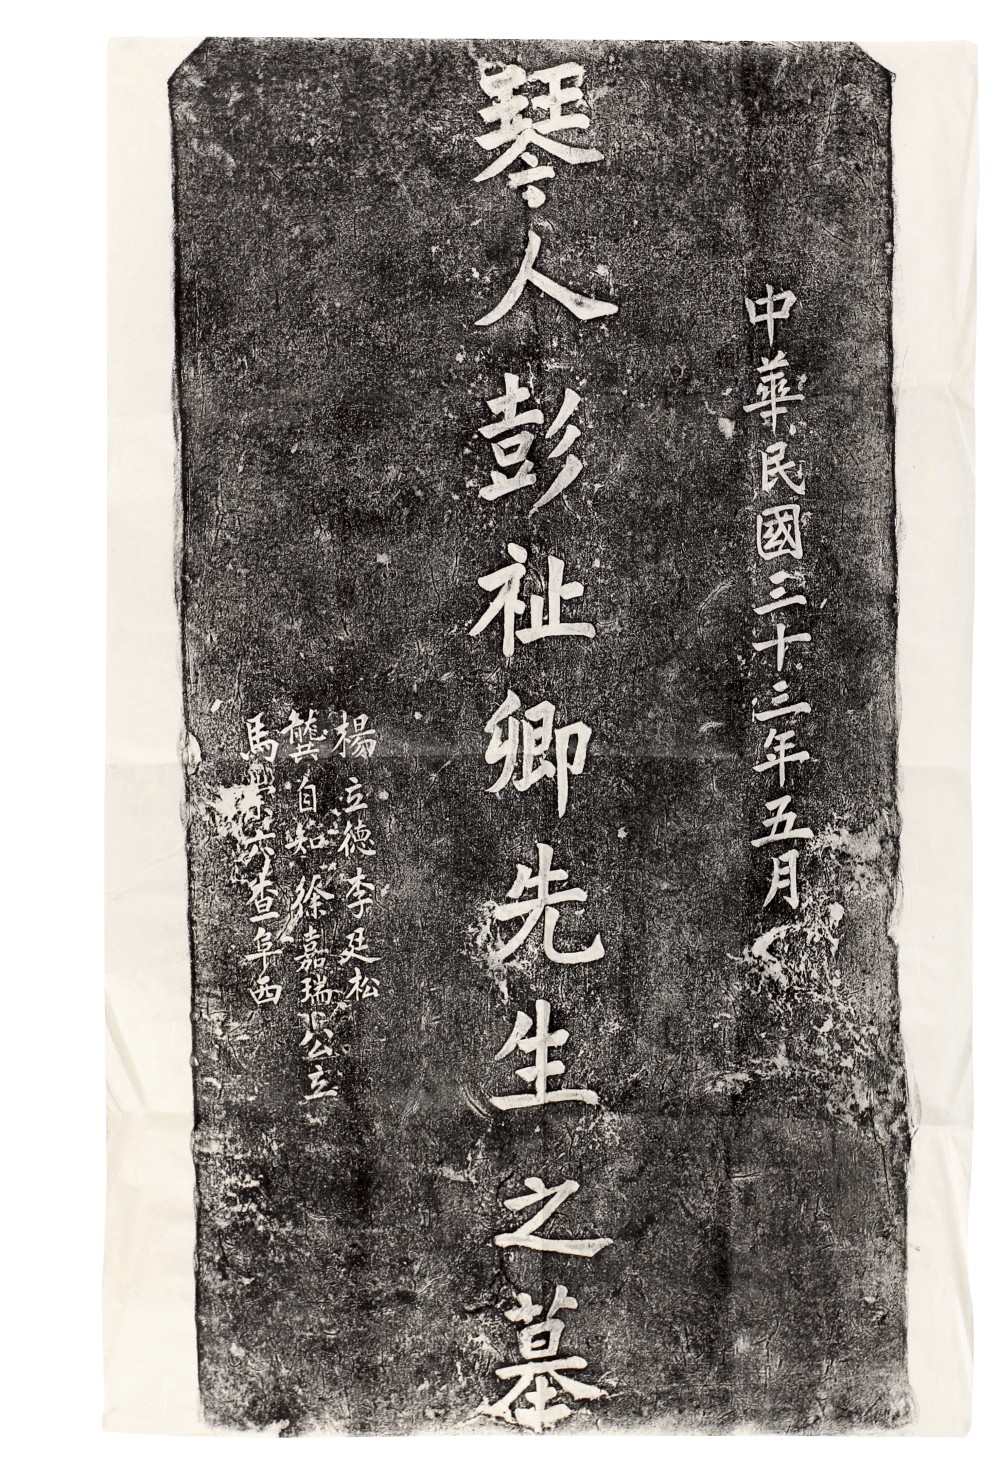 中華民國三十三年五月
琴人彭祉卿先生之墓
楊立德李廷松
龔自知徐嘉瑞公立
馬崇六查阜西